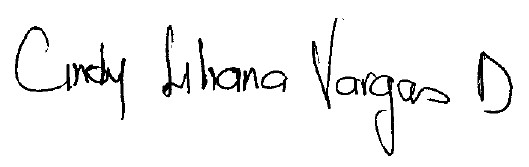 Cindy Liliana Vargas D